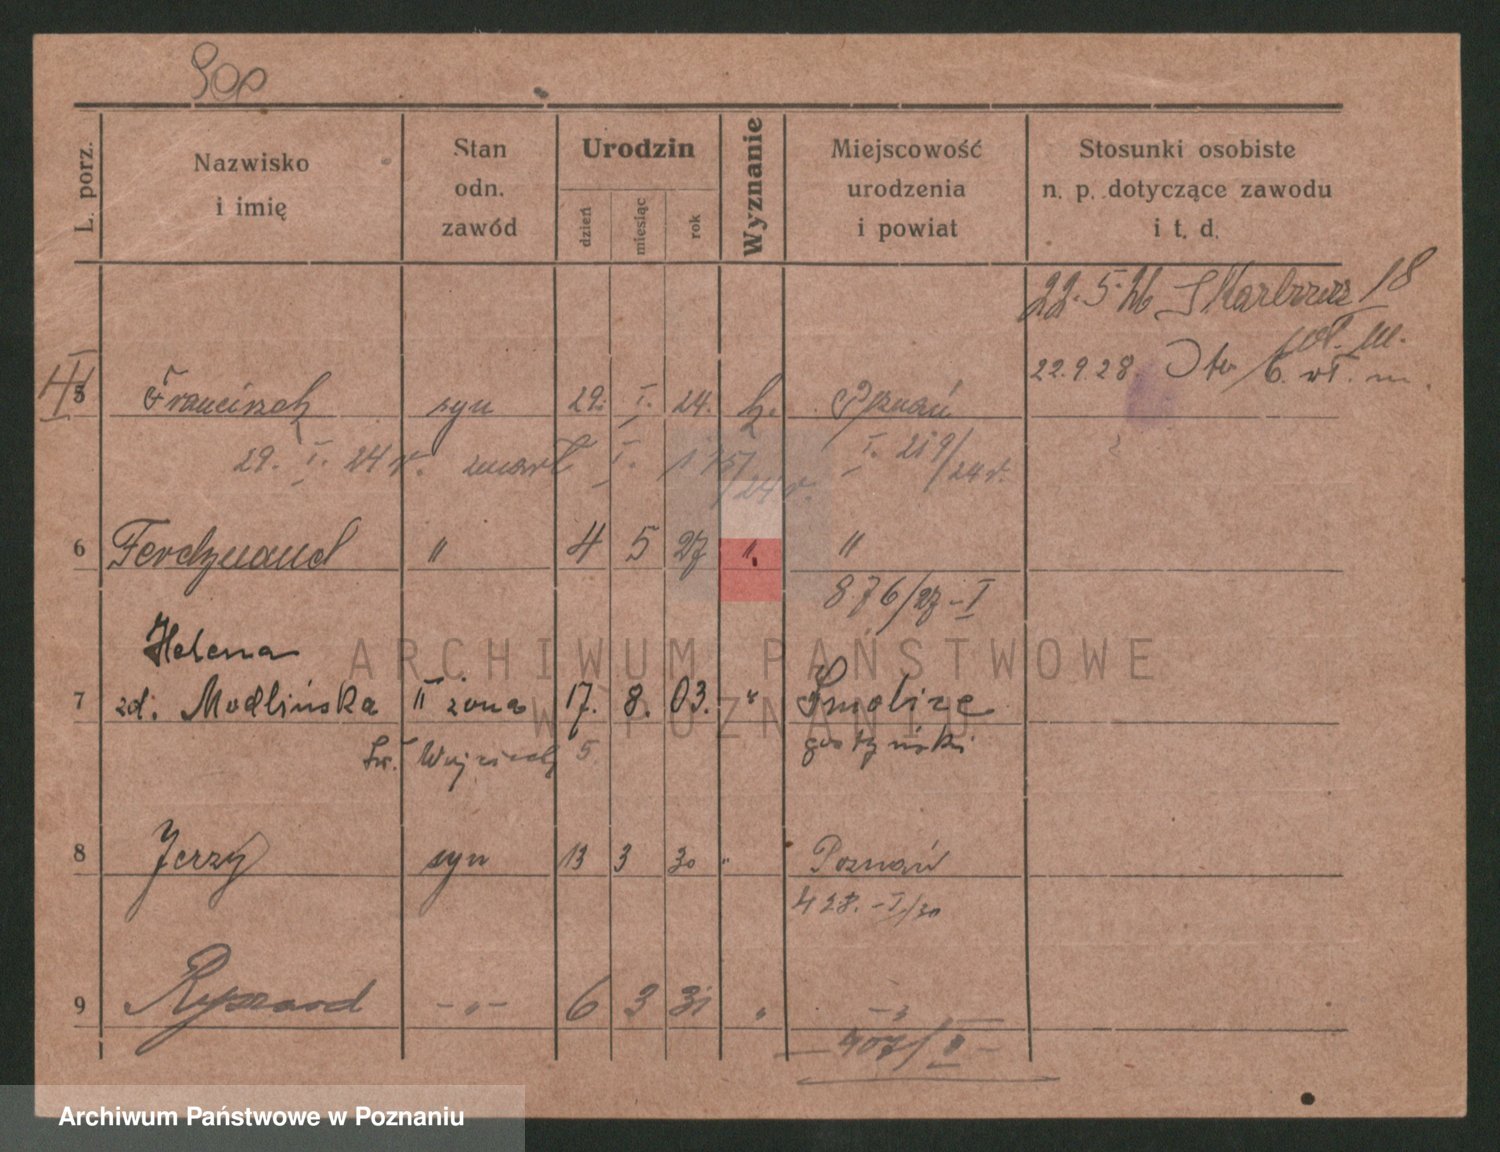 L. porz.
Nazwisko
i imię
Stan
odn.
zawód
Urodzin
dzień
miesiąc
rok
Wyznanie
Miejscowość
urodzenia
i powiat
Stosunki osobiste
n. p. dotyczące zawodu
i t. d.
22.5.26 18
22.9.28. 6. m.
5 Franciszek syn 29. I. 24. k. Poznań
29. I. 24 r. zmarł I. 24 r. I. 219/24 r.
6 Ferdynand " 4 5 27 " "
876/27 - I
Helena
7 zd. Modlińska II żona 17. 8. 03. " Smolice
św. Wojciech 5. gostyński
8 Jerzy syn 13 3 30 " Poznań
428. - I/30
9 Ryszard - " - 6 3 31 " - " -
407/II -
ARCHIWUM PAŃSTWOWE
W POZNANIU
Archiwum Państwowe w Poznaniu